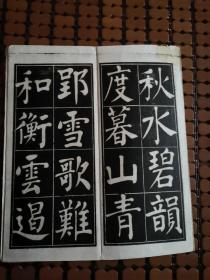 秋水碧韻
度暮山青
郢雪歌難
和衡雲遏